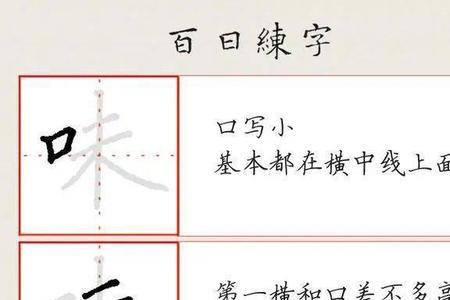 百日練字
味
口写小
基本都在横中线上面
第一横和口差不多高